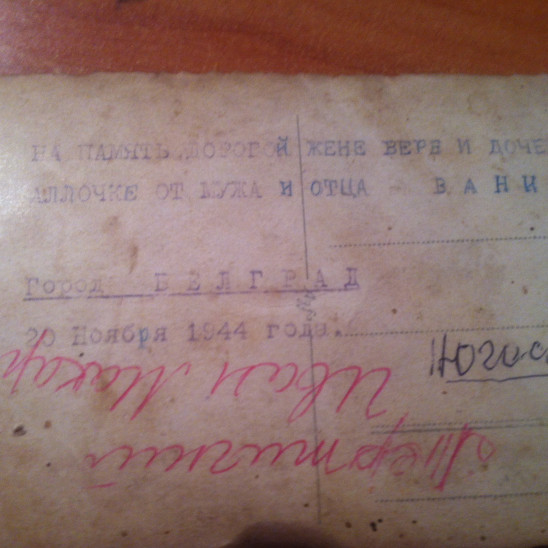 НА ПАМЯТЬ ДОРОГОЙ ЖЕНЕ ВЕРЯ И ДОЧЕ
АЛЛОЧКЕ ОТ МУЖА И ОТЦА ВАНИ
Город БЕЛГРАД
20 Ноября 1944 года.
Югос
Иван Макар